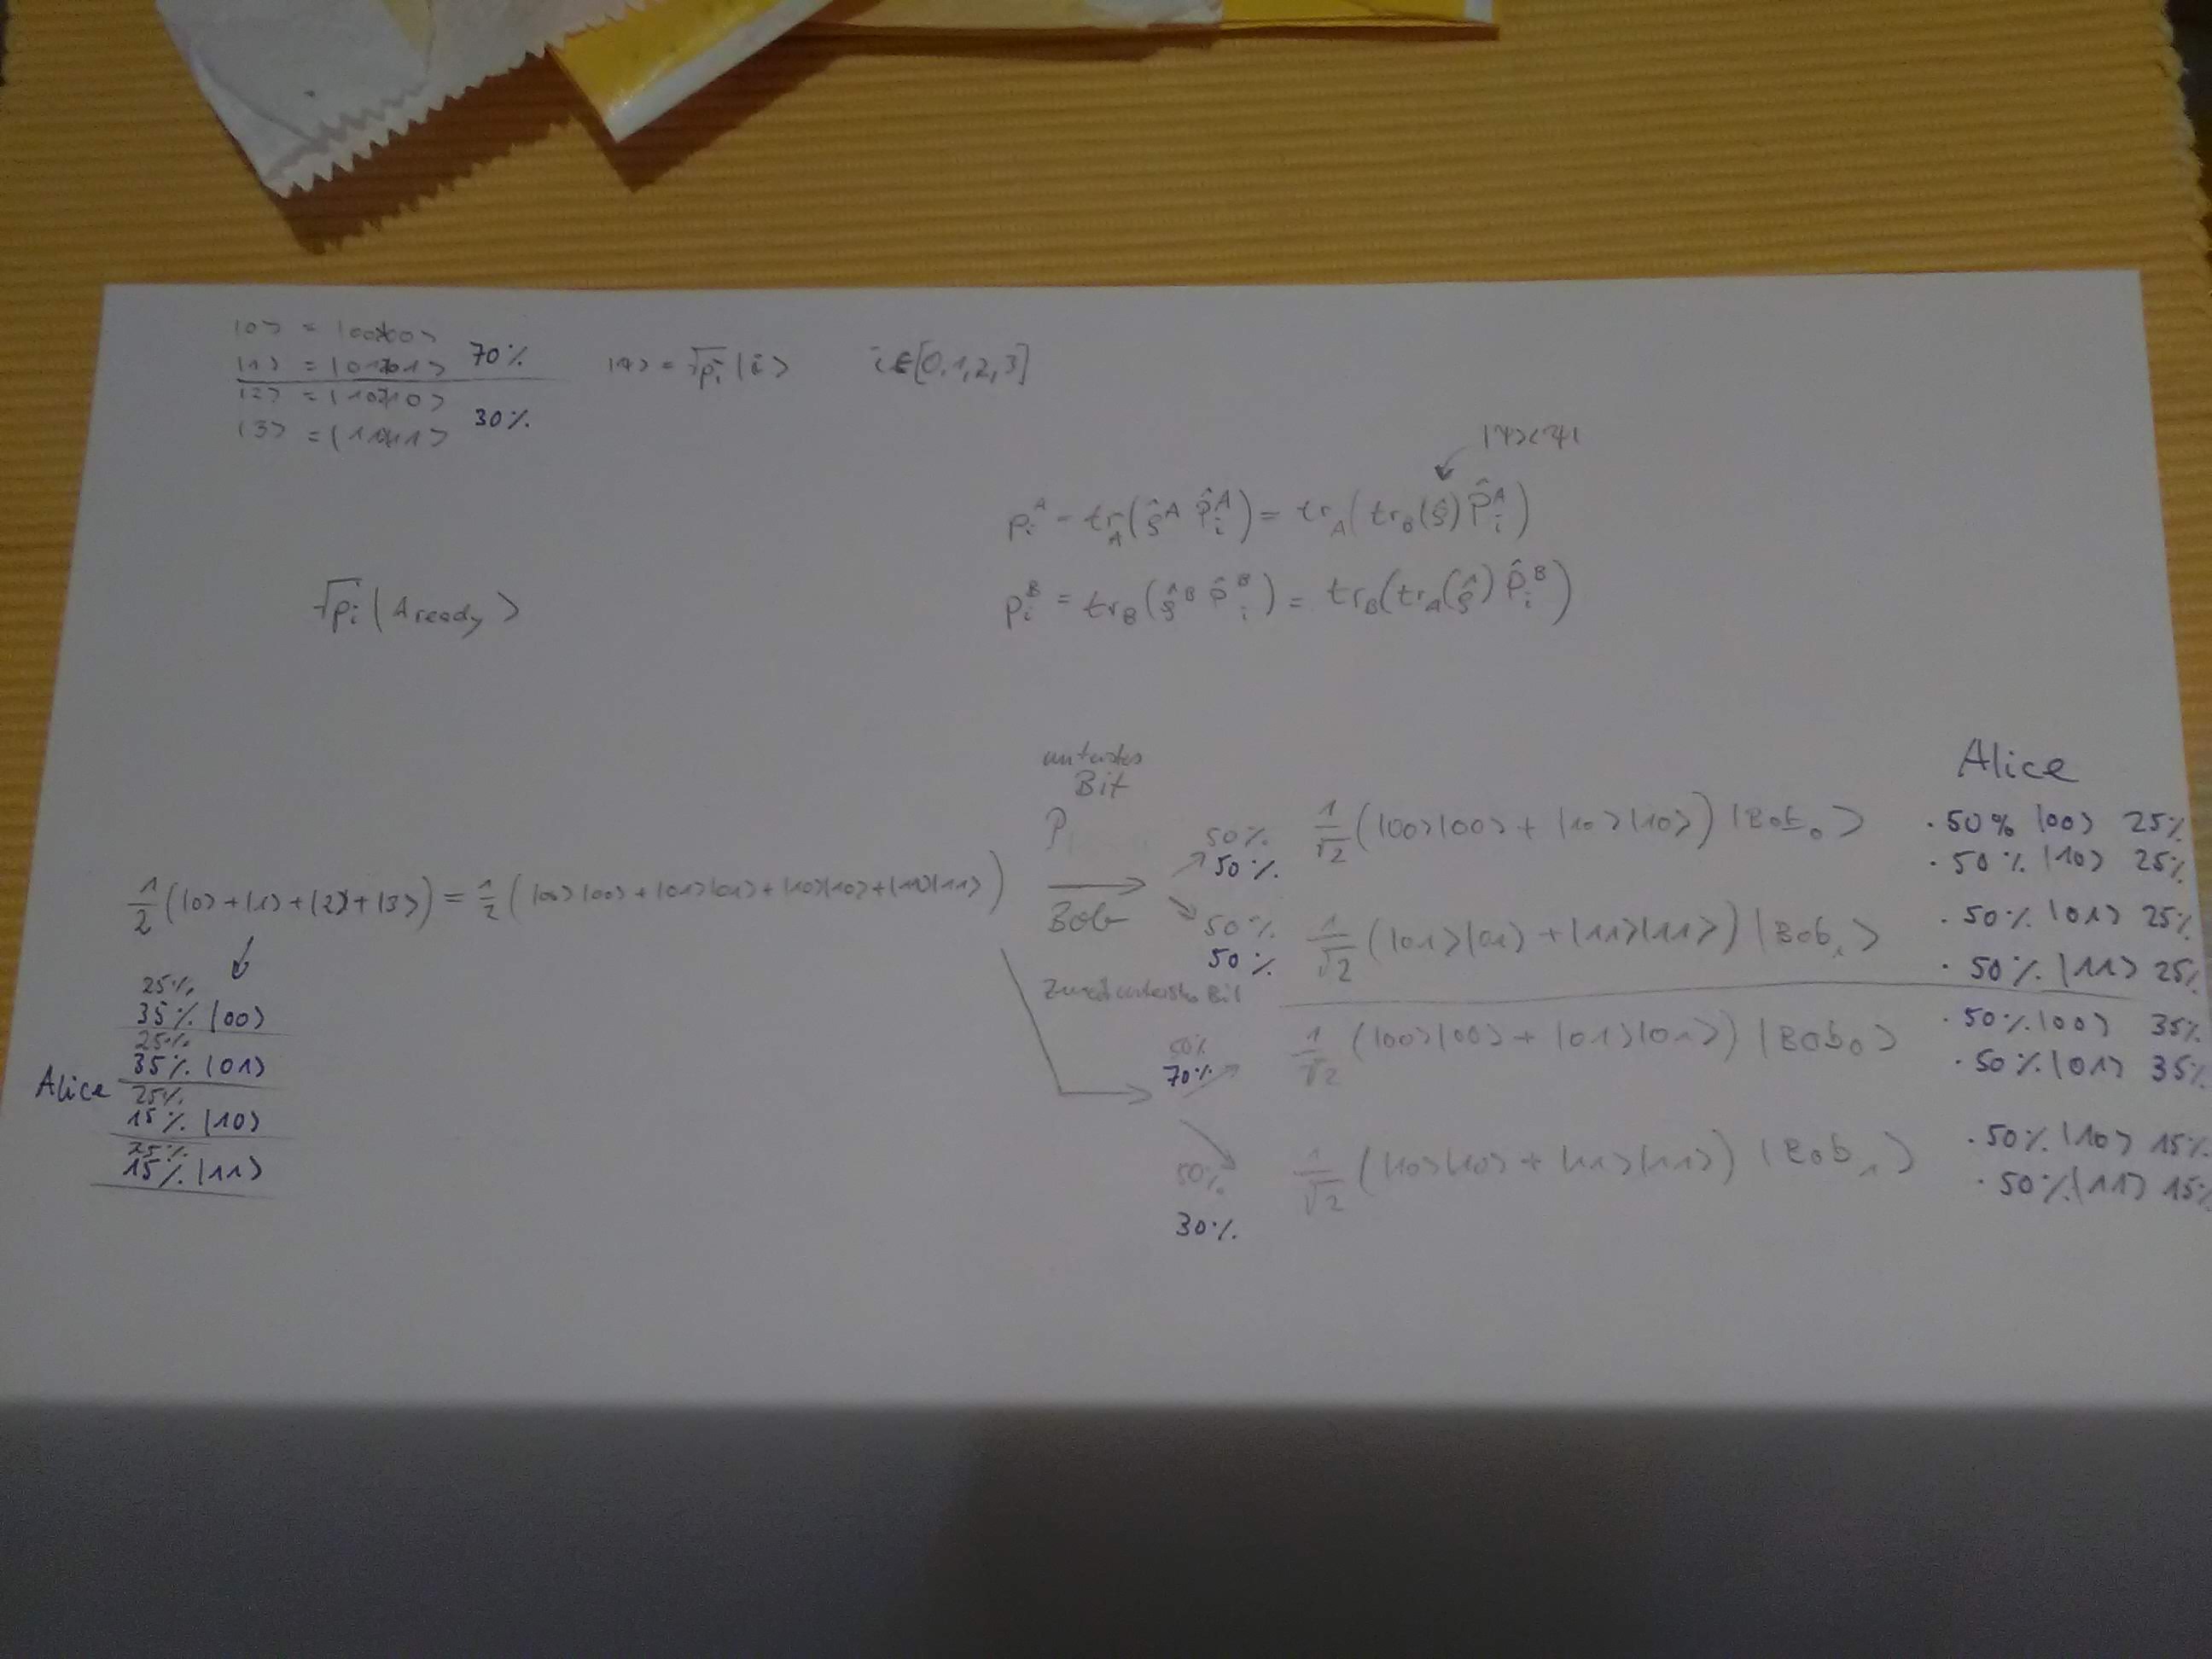 |0> = |00>|00>
|1> = |01>|01> 70%
|2> = |10>|10>
|3> = |11>|11> 30%
|ψ> = √pᵢ |i> i∈[0,1,2,3]
|ψ><ψ|
pᵢᴬ = tr_A(ρ̂ᴬ P̂ᵢᴬ) = tr_A(tr_B(ρ̂) P̂ᵢᴬ)
pᵢᴮ = tr_B(ρ̂ᴮ P̂ᵢᴮ) = tr_B(tr_A(ρ̂) P̂ᵢᴮ)
√pᵢ |A ready>
1/2 (|0> + |1> + |2> + |3>) = 1/2 (|00>|00> + |01>|01> + |10>|10> + |11>|11>)
25%
35% |00>
25%
35% |01>
Alice
25%
15% |10>
25%
15% |11>
unterstes
Bit
P
Bob
zweitunterstes Bit
Alice
50%
50%
1/√2 (|00>|00> + |10>|10>) |Bob₀>
· 50% |00> 25%
· 50% |10> 25%
50%
50%
1/√2 (|01>|01> + |11>|11>) |Bob₁>
· 50% |01> 25%
· 50% |11> 25%
50%
70%
1/√2 (|00>|00> + |01>|01>) |Bob₀>
· 50% |00> 35%
· 50% |01> 35%
50%
30%
1/√2 (|10>|10> + |11>|11>) |Bob₁>
· 50% |10> 15%
· 50% |11> 15%